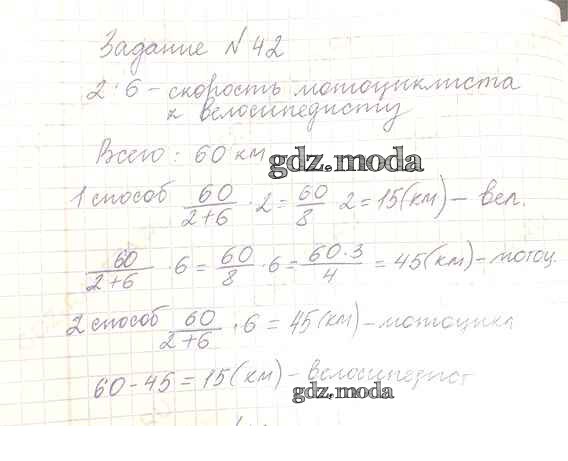 Задание №42
2:6 - скорость мотоциклиста
к велосипедисту
Всего: 60 км
gdz.moda
1 способ 60/2+6 · 2 = 60/8 2 = 15(км) - вел.
60/2+6 · 6 = 60/8 · 6 = 60·3/4 = 45(км) - мотоц.
2 способ 60/2+6 · 6 = 45(км) - мотоцикл
60 - 45 = 15(км) - велосипедист
gdz.moda